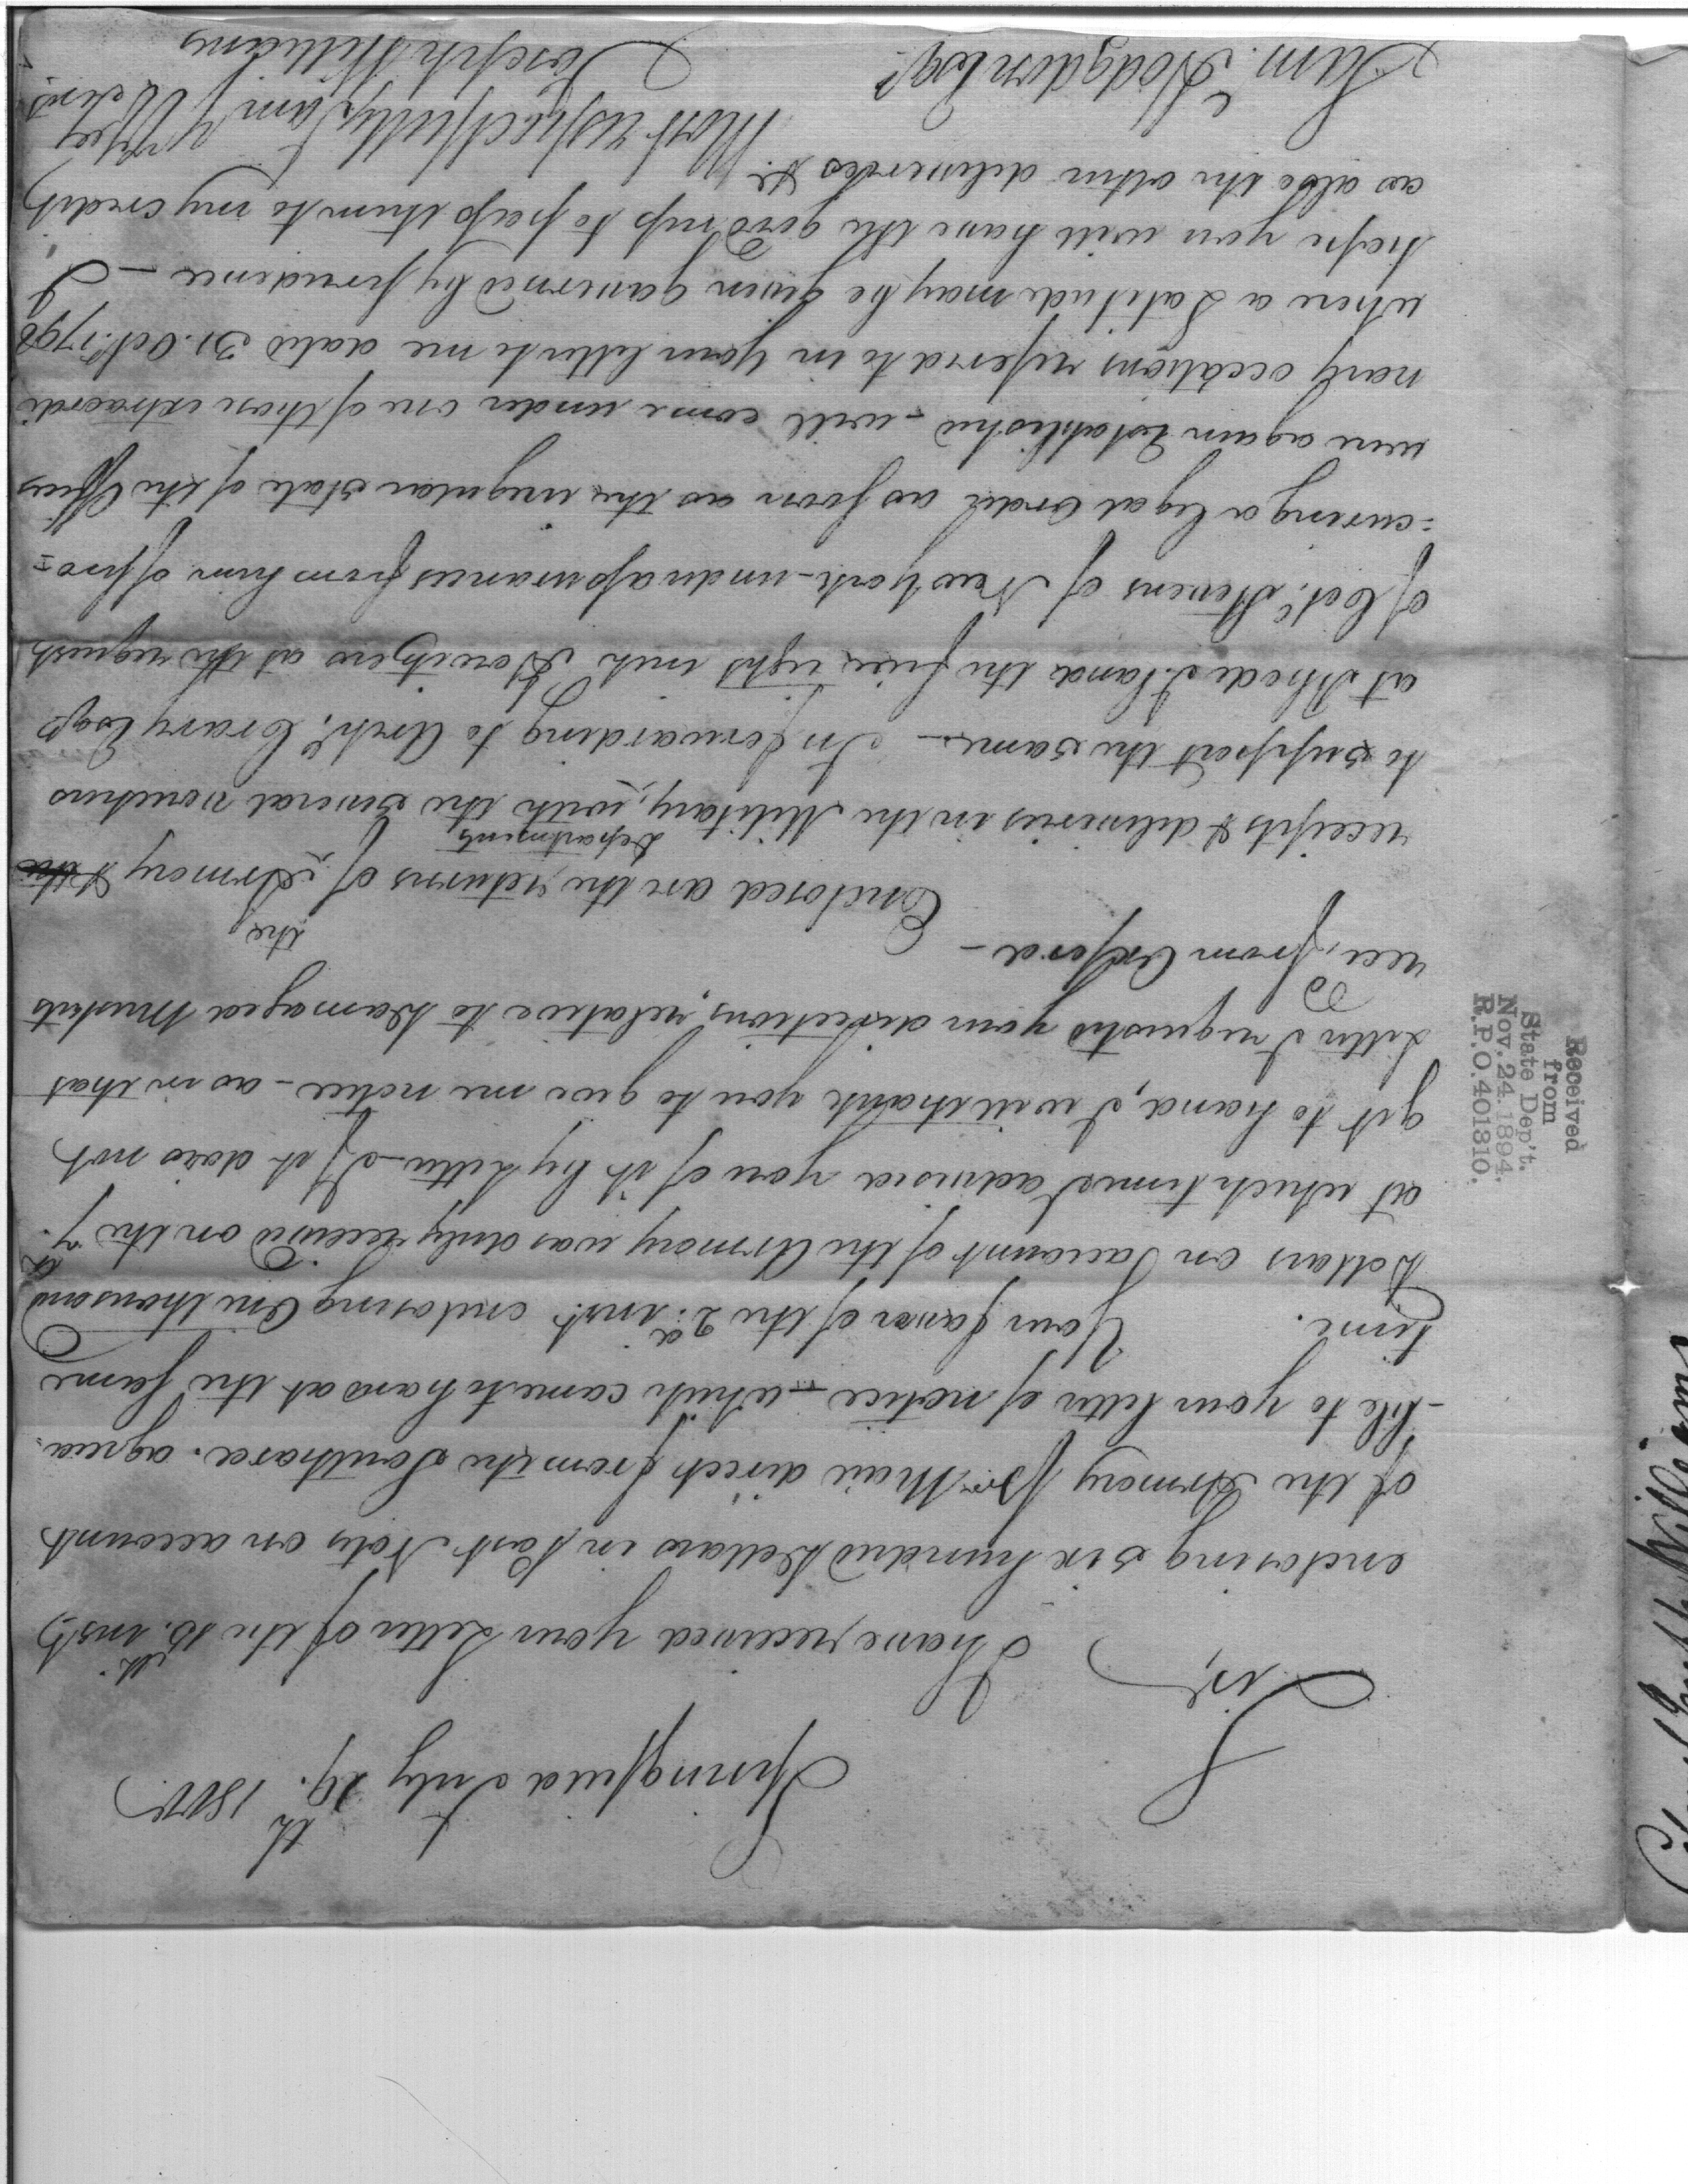 Springfield July 19.th 1800.
Sir,
I have received your Letter of the 10.th inst.
enclosing six hundred Dollars in Post Notes on account
of the Armory pr. Mail direct from the Southard. agrea-
-ble to your letter of notice - which came to hand at the same
time. Your favor of the 2.d inst. enclosing One thousand
Dollars on account of the Armory was duly received on the 7.th
at which time I advised you of it by Letter - If it does not
get to hand, I will thank you to give me notice - as in that
Letter I requested your directions, relative to Damaged Muskets
recd. from Oxford -
Enclosed are the returns of the Armory & the
receipts & deliveries in the Military Department, with the several vouchers
to support the same. - In forwarding to Archd. Crary Esqr.
at Rhode Island the five eight inch Howitzers at the request
of Col.o Stevens of New York - under assurances from him of pro=
=curing a legal Order as soon as the irregular state of the Offices
were again Established - will come under one of those extraordi
nary occations referred to in your letter to me dated 31. Oct.r 1798
where a Latitude may be given governed by prudence - I
hope you will have the goodness to pass them to my credit,
as also the other deliveries &c.
Most respectfully I am Yr. Obt. Serv.
Joseph Williams
Sam. Hodgdon Esqr.
Received
from
State Dep't.
Nov. 24. 1894.
R.P.O. 401310.
Williams